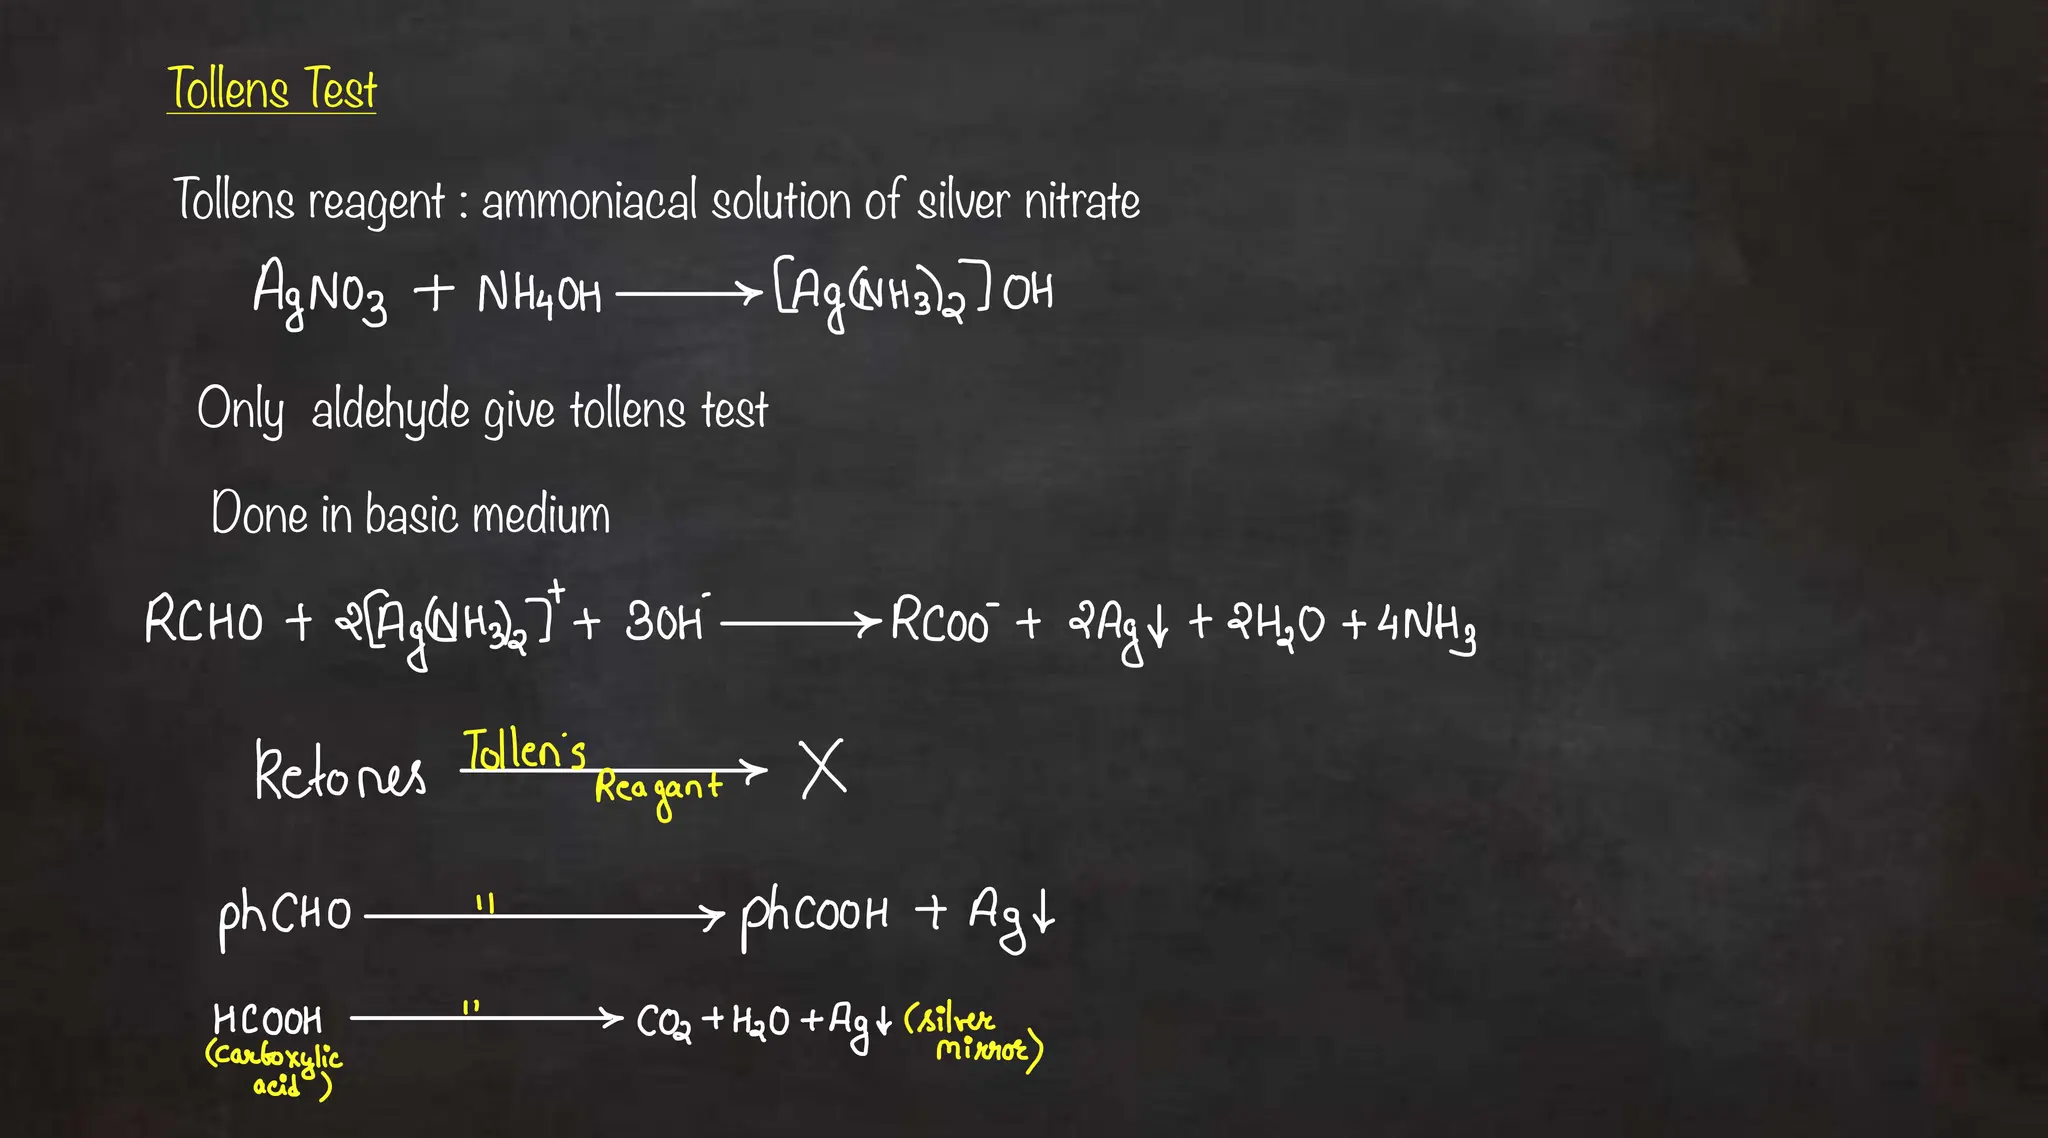 Tollens Test
Tollens reagent : ammoniacal solution of silver nitrate
AgNO₃ + NH₄OH ⟶ [Ag(NH₃)₂]OH
Only aldehyde give tollens test
Done in basic medium
RCHO + 2[Ag(NH₃)₂]⁺ + 3OH⁻ ⟶ RCOO⁻ + 2Ag↓ + 2H₂O + 4NH₃
Ketones Tollen's Reagant ⟶ X
phCHO " ⟶ phCOOH + Ag↓
HCOOH " ⟶ CO₂ + H₂O + Ag↓ (silver mirror)
(carboxylic acid)